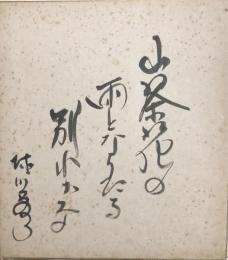 山茶花の
雨となりたる
別れかな